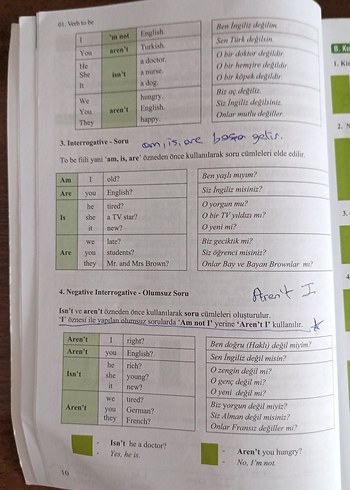 01. Verb to be
I 'm not English. Ben İngiliz değilim.
You aren't Turkish. Sen Türk değilsin.
He a doctor. O bir doktor değildir.
She isn't a nurse. O bir hemşire değildir.
It a dog. O bir köpek değildir.
We hungry. Biz aç değiliz.
You aren't English. Siz İngiliz değilsiniz.
They happy. Onlar mutlu değiller.
3. Interrogative - Soru am, is, are başa gelir.
To be fiili yani 'am, is, are' özneden önce kullanılarak soru cümleleri elde edilir.
Am I old? Ben yaşlı mıyım?
Are you English? Siz İngiliz misiniz?
he tired? O yorgun mu?
Is she a TV star? O bir TV yıldızı mı?
it new? O yeni mi?
we late? Biz geciktik mi?
Are you students? Siz öğrenci misiniz?
they Mr. and Mrs Brown? Onlar Bay ve Bayan Brownlar mı?
Aren't I
4. Negative Interrogative - Olumsuz Soru
Isn't ve aren't özneden önce kullanılarak soru cümleleri oluşturulur.
'I' öznesi ile yapılan olumsuz sorularda 'Am not I' yerine 'Aren't I' kullanılır.
Aren't I right? Ben doğru (Haklı) değil miyim?
Aren't you English? Sen İngiliz değil misin?
he rich? O zengin değil mi?
Isn't she young? O genç değil mi?
it new? O yeni değil mi?
we tired? Biz yorgun değil miyiz?
Aren't you German? Siz Alman değil misiniz?
they French? Onlar Fransız değiller mi?
- Isn't he a doctor? - Aren't you hungry?
- Yes, he is. - No, I'm not.
10
B. Ke
1. Kiş
2. N
3.
4